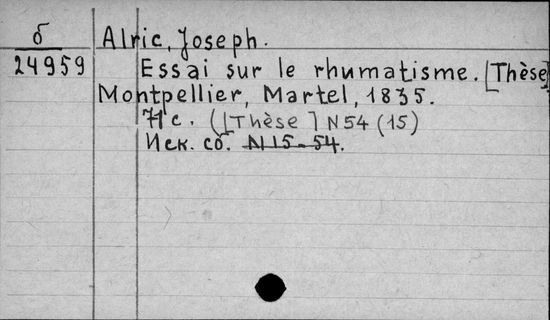 б
24959
Alric, Joseph.
Essai sur le rhumatisme. [Thèse]
Montpellier, Martel, 1835.
71 с. ([Thèse] N54 (15)
Иск. сб. N15-54.